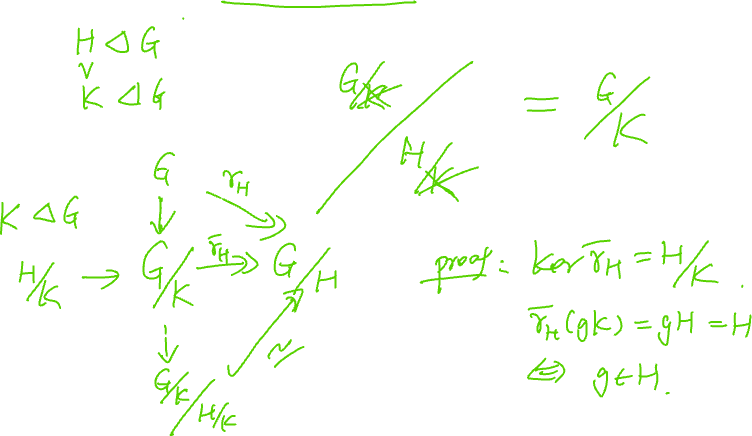 H ◁ G
∨
K ◁ G
G/K / H/K = G/K
G
r_H
K ◁ G
H/K → G/K r̄_H ↠ G/H
G/K / H/K
~
proof: ker r̄_H = H/K.
r̄_H(gK) = gH = H
⇔ g ∈ H.